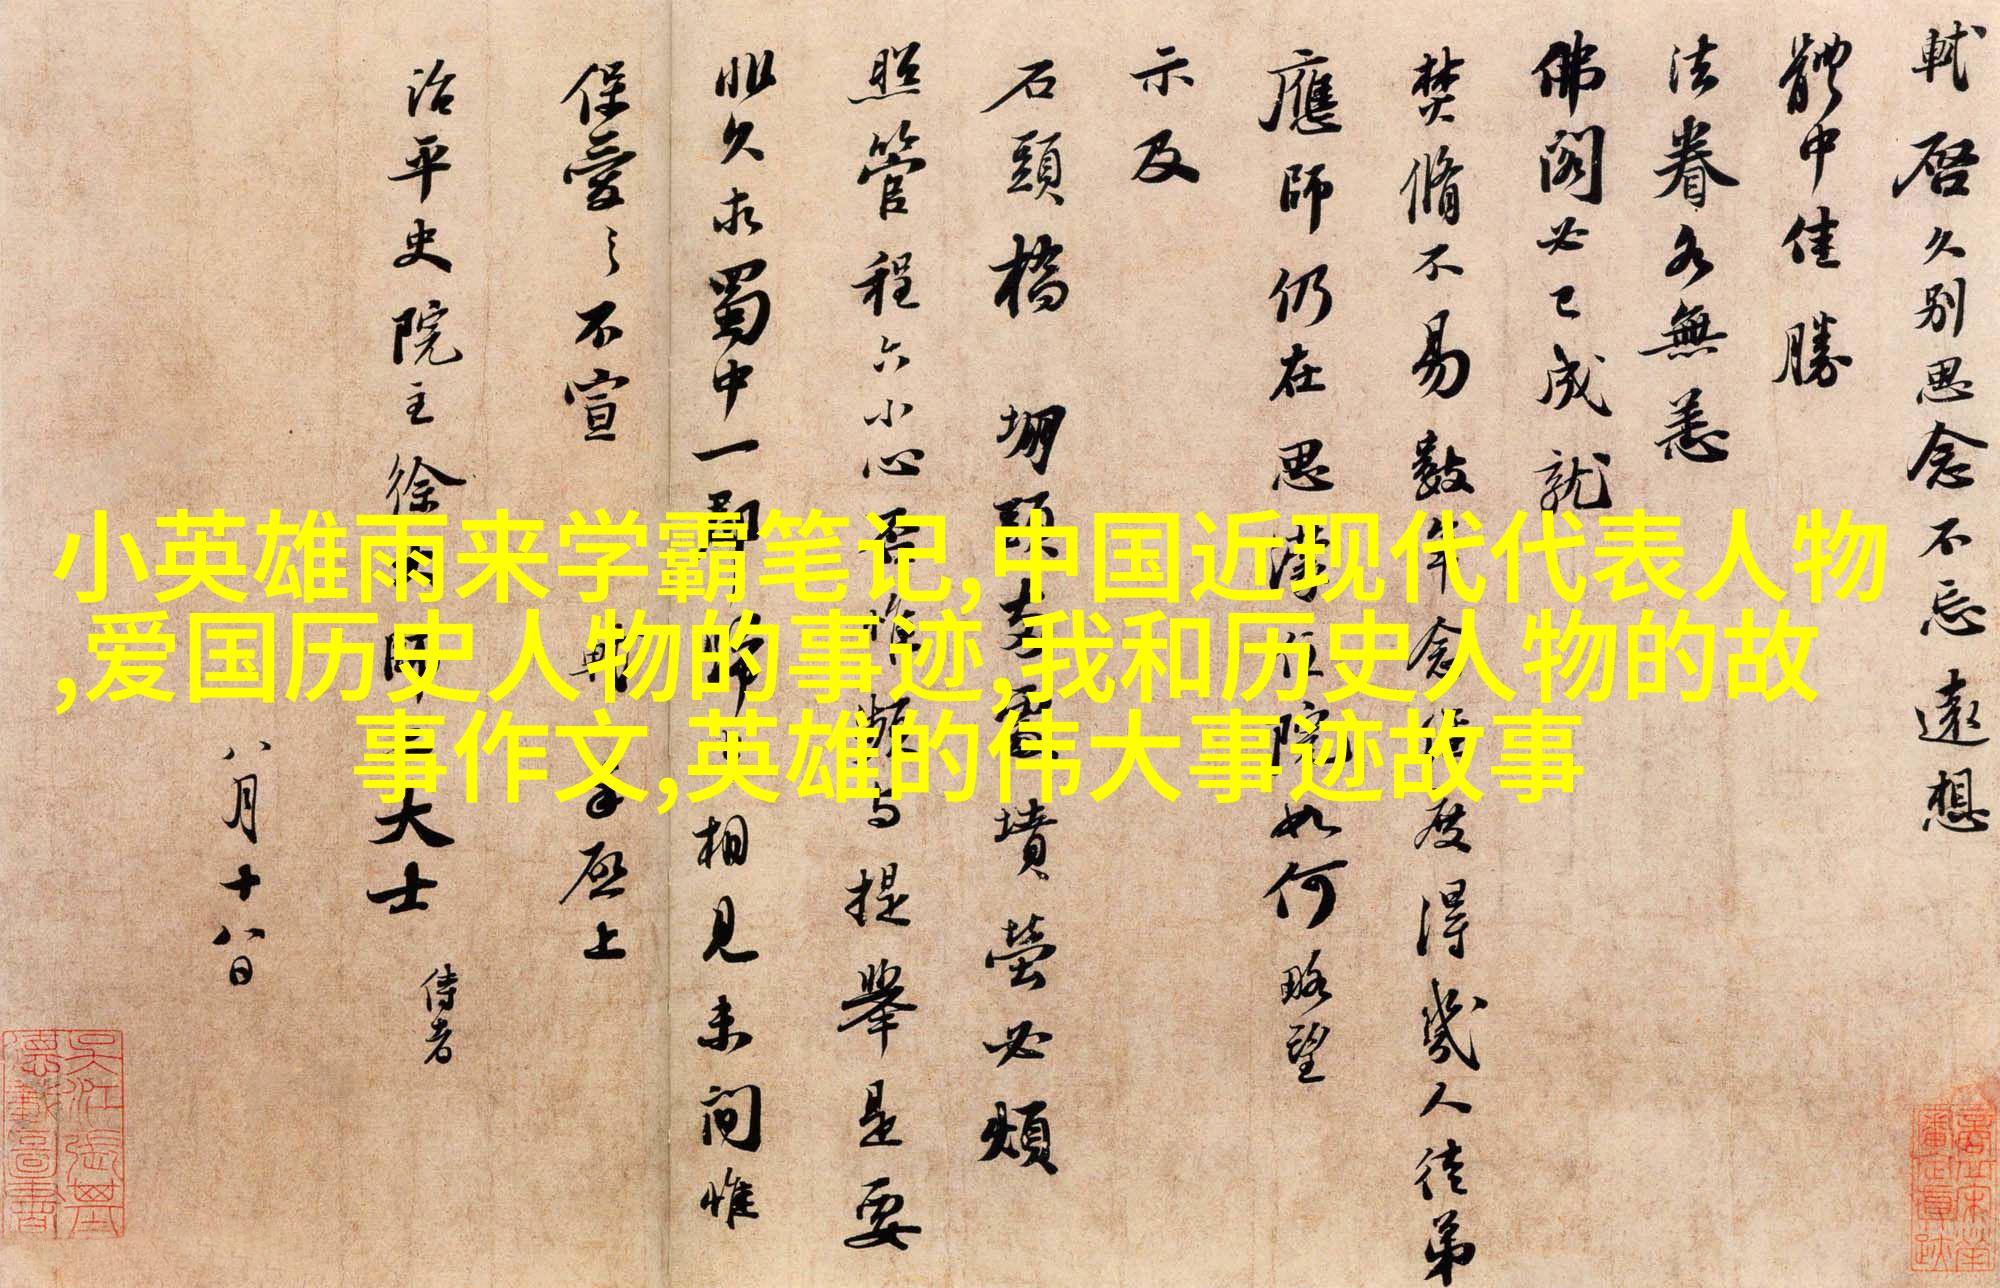 軾啓久别思念不忘遠想
體中佳勝
法眷各無恙
佛閣必已成就
焚脩不易數年念
度得幾人徒弟
應師仍在思
院如何略望
示及
石頭橋
墳塋必煩
照管程六小心否惟頻与提舉是要
非久求蜀中一郡歸去相見未間惟
保愛之不宣
手啓上
治平史院主徐
大士
侍者
八月十八日
小英雄雨来学霸笔记,中国近现代代表人物
,爱国历史人物的事迹,我和历史人物的故
事作文,英雄的伟大事迹故事